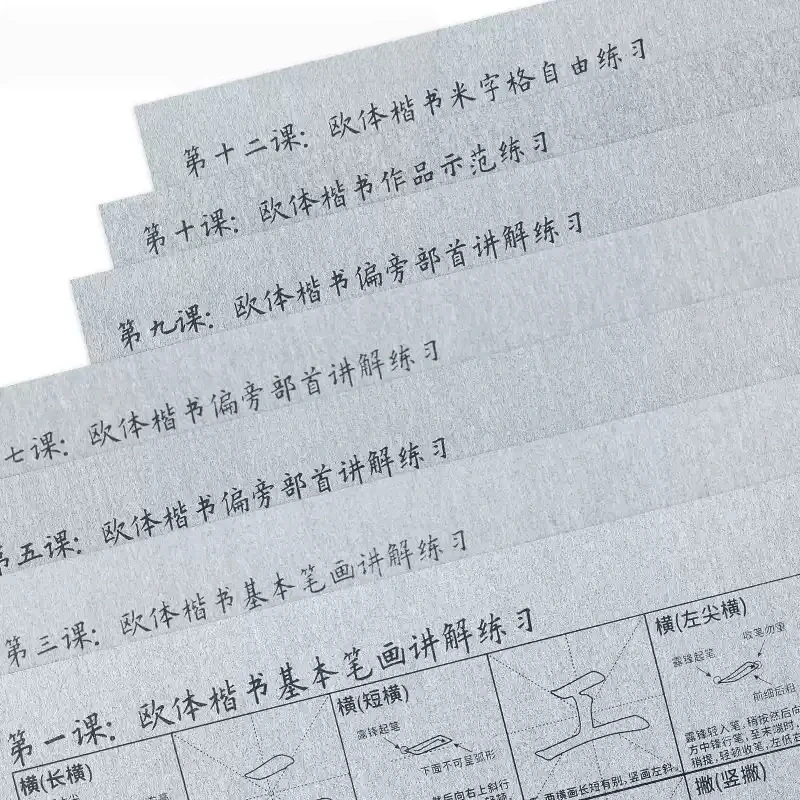 第十二课：欧体楷书米字格自由练习
第十课：欧体楷书作品示范练习
第九课：欧体楷书偏旁部首讲解练习
七课：欧体楷书偏旁部首讲解练习
第五课：欧体楷书偏旁部首讲解练习
第三课：欧体楷书基本笔画讲解练习
第一课：欧体楷书基本笔画讲解练习
横(左尖横)
收笔勿重
露锋起笔
前细后粗
露锋轻入笔，稍按然后向
方中锋行笔，至末端时，
稍提，轻顿收笔，左低右
横(短横)
露锋起笔
下面不可呈弧形
然后向右上斜行
两横画长短有别，竖画左斜。
横(长横)
撇(竖撇)